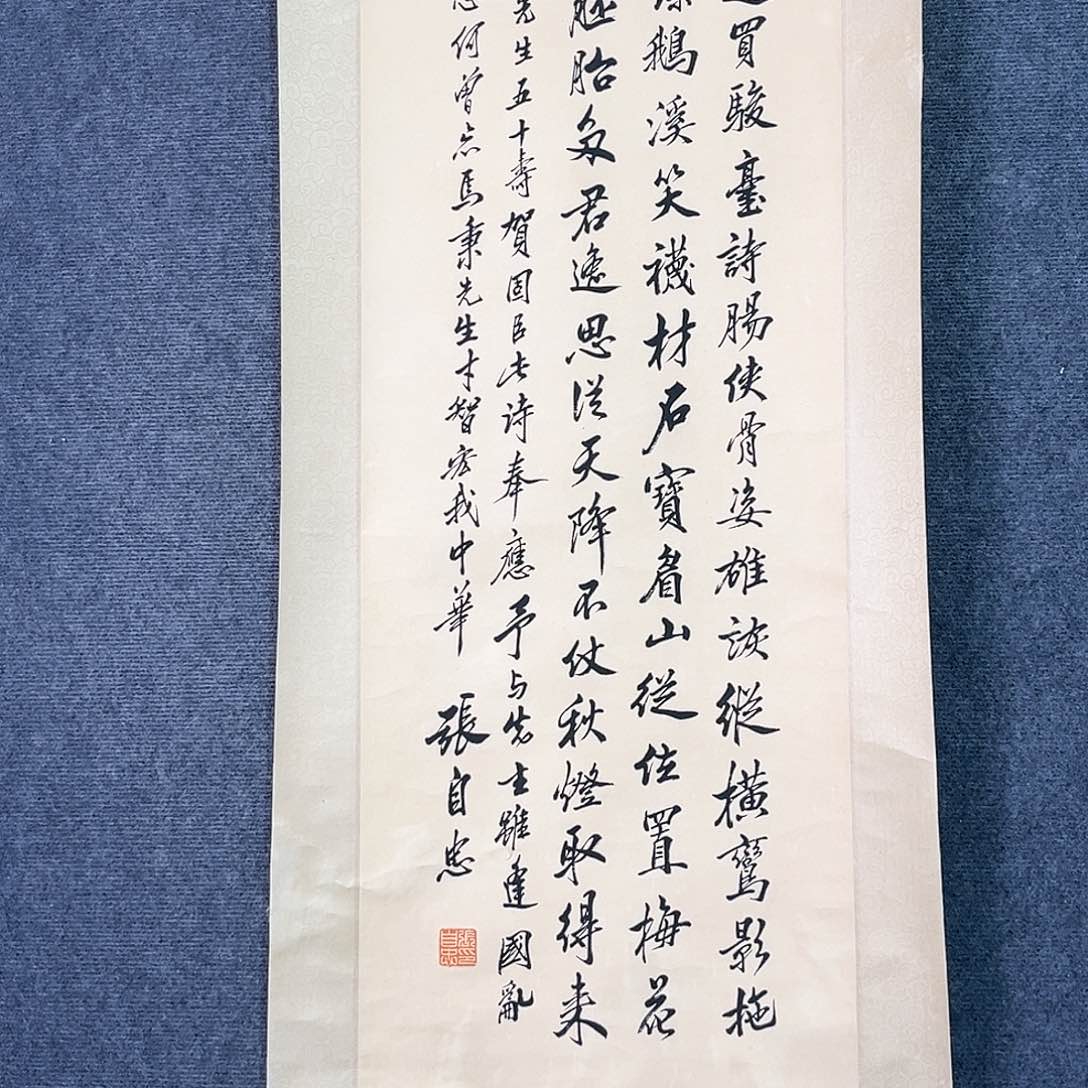 買駿臺詩腸俠骨姿雄詼縱橫鸞影拖
鵝溪笑襪材石寶眉山従位置梅花
胚胎多君遙思從天降不仗秋燈取得来
先生五十壽賀固臣此诗奉應予与先生雖逢國亂
何曾忘馬秉先生才智宏我中華
張自忠
張自忠印